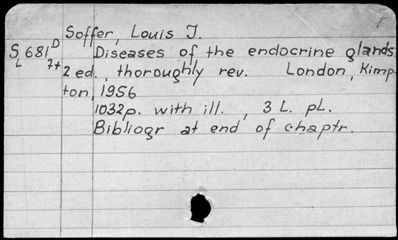 Soffer, Louis J.
S 681 D Diseases of the endocrine glands
L 7+ 2 ed., thoroughly rev. London, Kimp-
ton, 1956
1032p. with ill., 3 L. pL.
Bibliogr at end of chaptr.